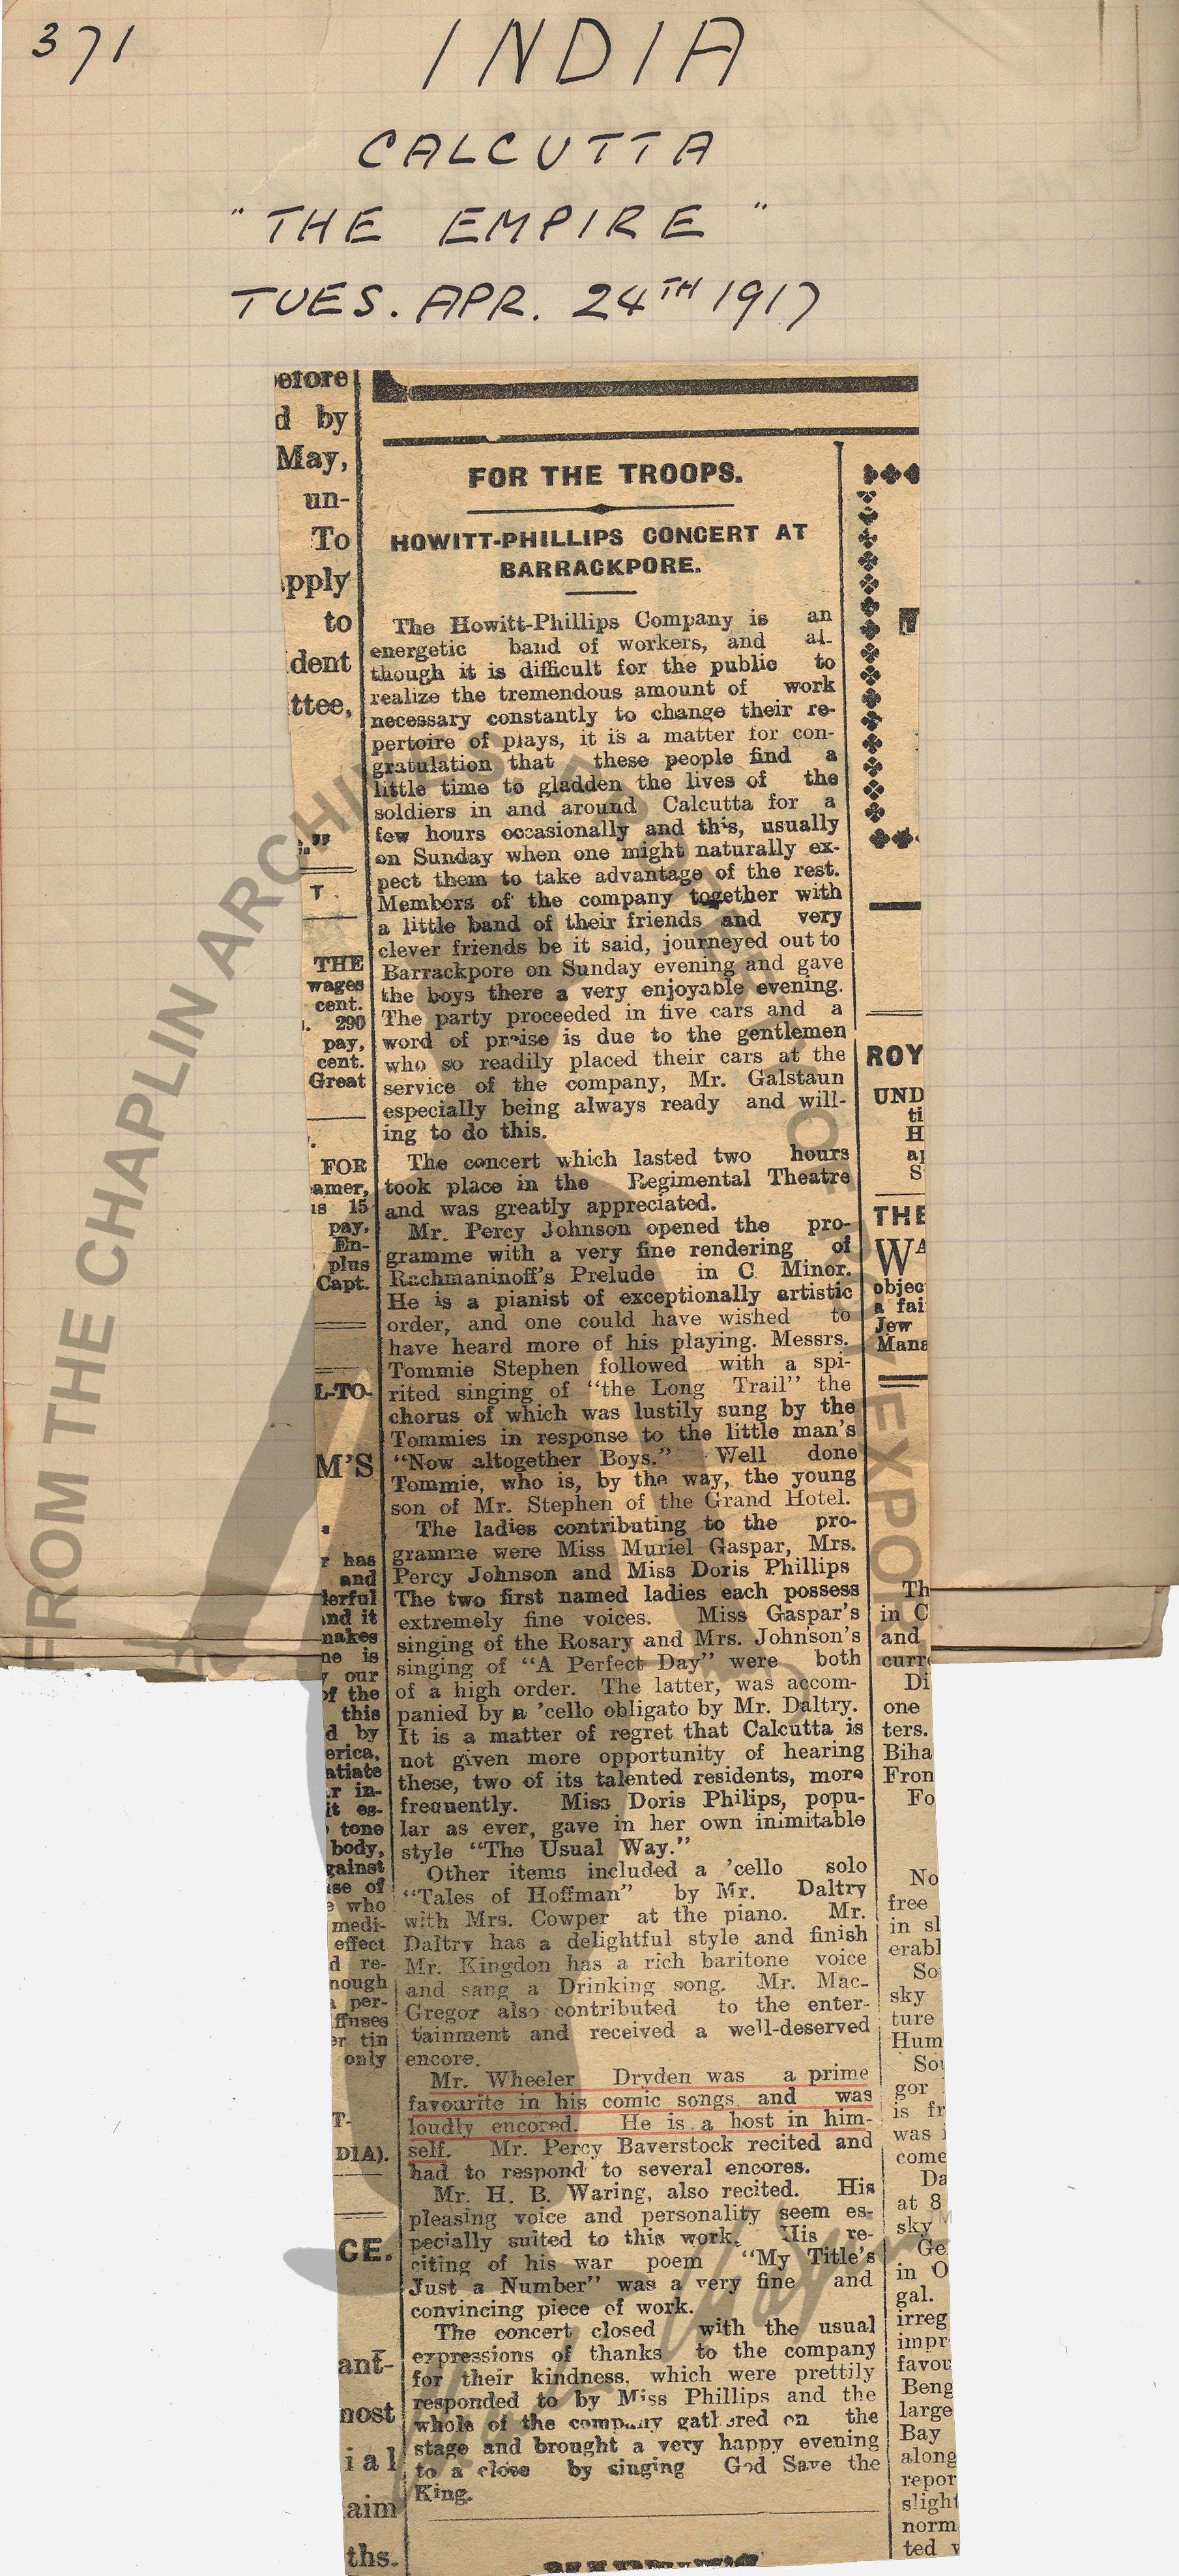 371
INDIA
CALCUTTA
"THE EMPIRE"
TUES. APR. 24TH 1917
FOR THE TROOPS.
HOWITT-PHILLIPS CONCERT AT
BARRACKPORE.
The Howitt-Phillips Company is an
energetic band of workers, and al-
though it is difficult for the public to
realize the tremendous amount of work
necessary constantly to change their re-
pertoire of plays, it is a matter for con-
gratulation that these people find a
little time to gladden the lives of the
soldiers in and around Calcutta for a
few hours occasionally and this, usually
on Sunday when one might naturally ex-
pect them to take advantage of the rest.
Members of the company together with
a little band of their friends and very
clever friends be it said, journeyed out to
Barrackpore on Sunday evening and gave
the boys there a very enjoyable evening.
The party proceeded in five cars and a
word of praise is due to the gentlemen
who so readily placed their cars at the
service of the company, Mr. Galstaun
especially being always ready and will-
ing to do this.
The concert which lasted two hours
took place in the Regimental Theatre
and was greatly appreciated.
Mr. Percy Johnson opened the pro-
gramme with a very fine rendering of
Rachmaninoff's Prelude in C Minor.
He is a pianist of exceptionally artistic
order, and one could have wished to
have heard more of his playing. Messrs.
Tommie Stephen followed with a spi-
rited singing of "the Long Trail" the
chorus of which was lustily sung by the
Tommies in response to the little man's
"Now altogether Boys." Well done
Tommie, who is, by the way, the young
son of Mr. Stephen of the Grand Hotel.
The ladies contributing to the pro-
gramme were Miss Muriel Gaspar, Mrs.
Percy Johnson and Miss Doris Phillips
The two first named ladies each possess
extremely fine voices. Miss Gaspar's
singing of the Rosary and Mrs. Johnson's
singing of "A Perfect Day" were both
of a high order. The latter, was accom-
panied by a 'cello obligato by Mr. Daltry.
It is a matter of regret that Calcutta is
not given more opportunity of hearing
these, two of its talented residents, more
frequently. Miss Doris Philips, popu-
lar as ever, gave in her own inimitable
style "The Usual Way."
Other items included a 'cello solo
"Tales of Hoffman" by Mr. Daltry
with Mrs. Cowper at the piano. Mr.
Daltry has a delightful style and finish
Mr. Kingdon has a rich baritone voice
and sang a Drinking song. Mr. Mac-
Gregor also contributed to the enter-
tainment and received a well-deserved
encore.
Mr. Wheeler Dryden was a prime
favourite in his comic songs and was
loudly encored. He is a host in him-
self. Mr. Percy Baverstock recited and
had to respond to several encores.
Mr. H. B. Waring, also recited. His
pleasing voice and personality seem es-
pecially suited to this work. His re-
citing of his war poem "My Title's
Just a Number" was a very fine and
convincing piece of work.
The concert closed with the usual
expressions of thanks to the company
for their kindness, which were prettily
responded to by Miss Phillips and the
whole of the company gathered on the
stage and brought a very happy evening
to a close by singing God Save the
King.
efore
d by
May,
un-
To
pply
to
dent
ttee,
T
THE
wages
cent.
290
pay,
cent.
Great
FOR
amer,
is 15
pay,
En-
plus
Capt.
L-TO-
M'S
r has
and
derful
and it
makes
ne is
y our
of the
this
d by
erica,
atiate
r in-
it es-
tone
body,
gainst
use of
who
medi-
effect
d re-
nough
per-
ffuses
er tin
only
T-
DIA).
CE.
ant-
nost
ial
aim
ths.
ROY
UND
ti
H
ap
S
THE
WA
objec
a fai
Jew
Mana
Th
in C
and
curre
Di
one
ters.
Biha
Fron
Fo
No
free
in sl
erabl
So
sky
ture
Hum
Sou
gor
is fr
was i
come
Da
at 8
sky
Ge
in O
gal.
irreg
impr
favou
Beng
large
Bay
along
repor
slight
norm
ted
FROM THE CHAPLIN ARCHIVES